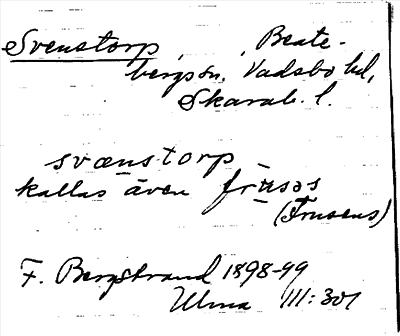 Svenstorp, Beate-
bergs sn, Vadsbo hd,
Skarab. l.
svænstorp
kallas även frusəs
(Frusens)
F. Bergstrand 1898-99
Ulma III:301